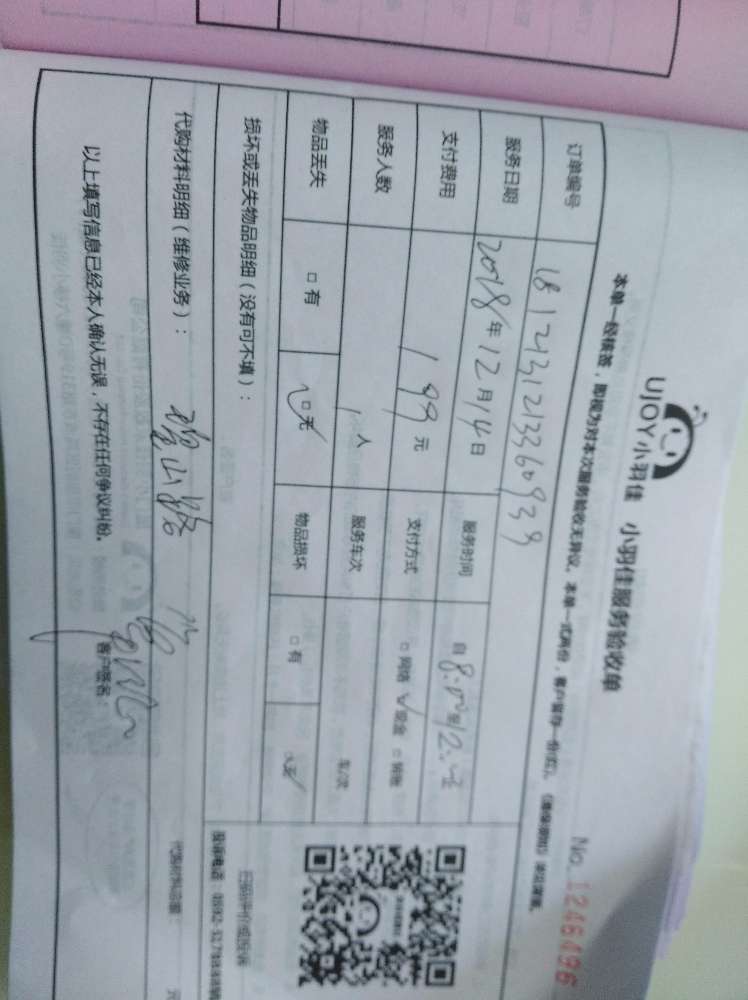 UJOY小羽佳 小羽佳服务验收单
No.1246496
本单一经核签，即视为对本次服务验收无异议。本单一式两份，客户留存一份(红)。
订单编号 1812131213360939
服务日期 2018年12月14日 服务时间 自8:00至12:00
支付费用 199元 支付方式 □网络 √现金 □转账
服务人数 1人 服务车次 车/次
物品丢失 □有 □无 物品损坏 □有 □无
损坏或丢失物品明细（没有可不填）：
扫码评价或投诉
投诉电话：0592-
代购材料明细（维修业务）：
代购材料总額： 元
以上填写信息已经本人确认无误，不存在任何争议纠纷。
客户签名：